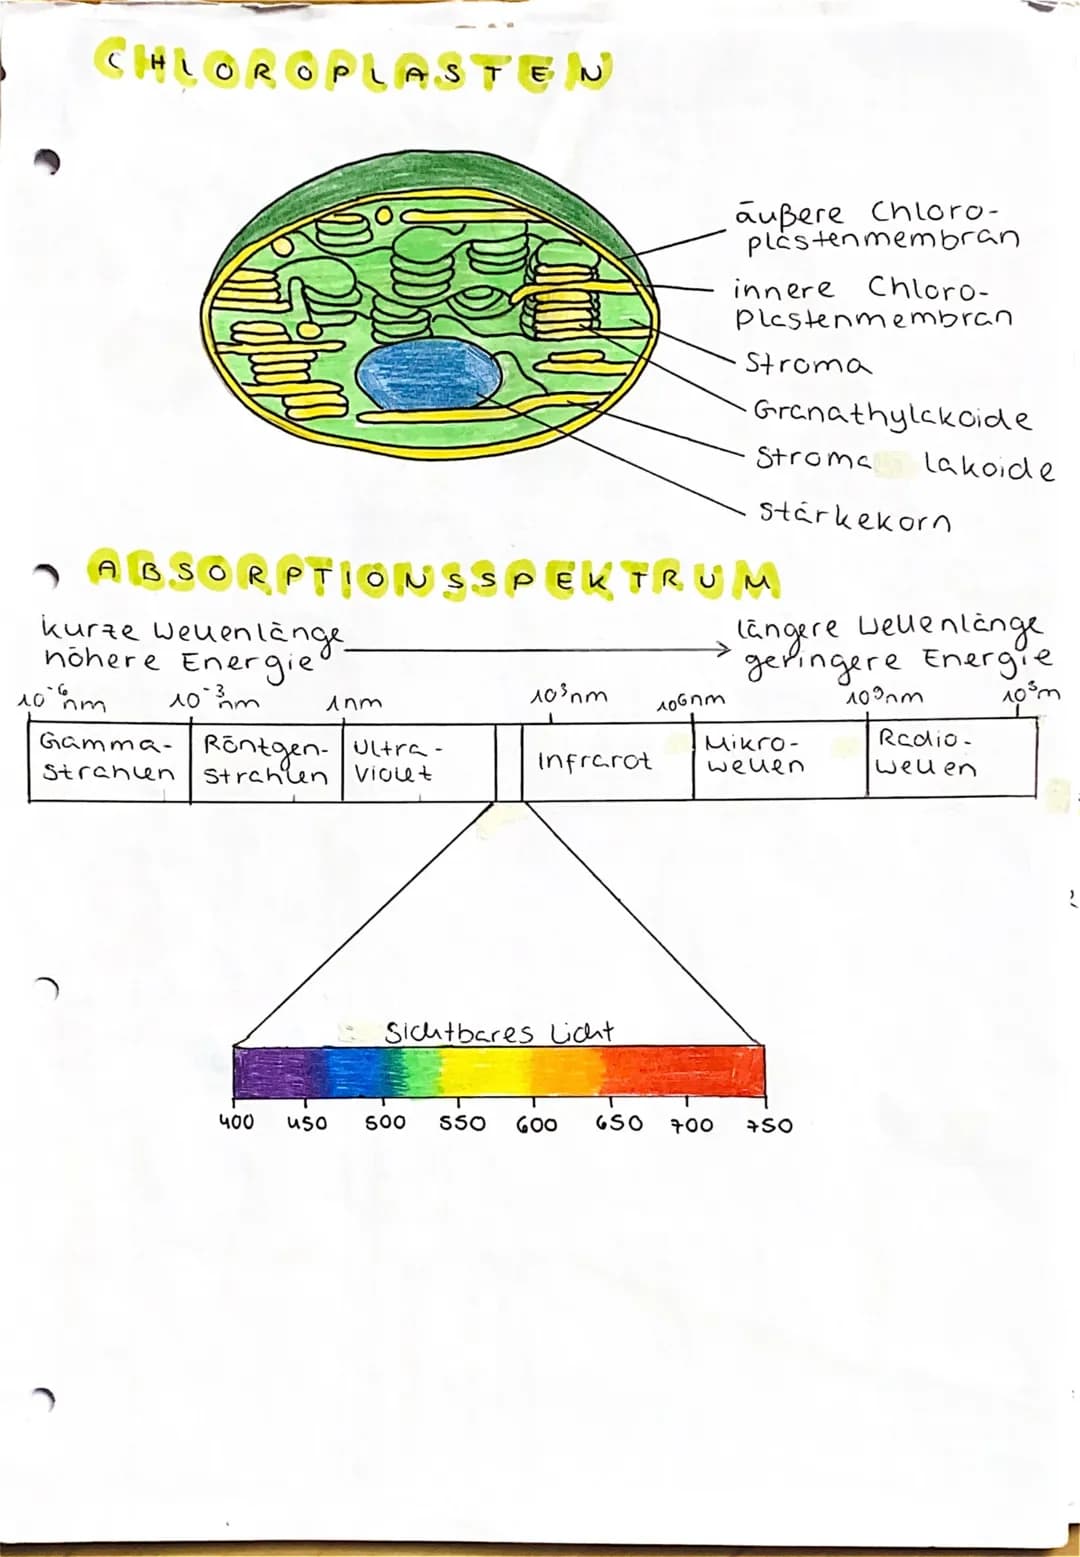 CHLOROPLASTEN
äußere Chloro-
plastenmembran
innere Chloro-
plastenmembran
Stroma
Granathylakoide
Stroma lakoide
Stärkekorn
ABSORPTIONSSPEKTRUM
kurze Wellenlänge
höhere Energie
längere Wellenlänge
geringere Energie
10⁻⁶nm 10⁻³nm 1nm 10³nm 10⁶nm 10⁹nm 10³m
Gamma-
strahlen
Röntgen-
strahlen
Ultra-
Violet
Infrarot
Mikro-
wellen
Radio-
wellen
Sichtbares Licht
400 450 500 550 600 650 700 750